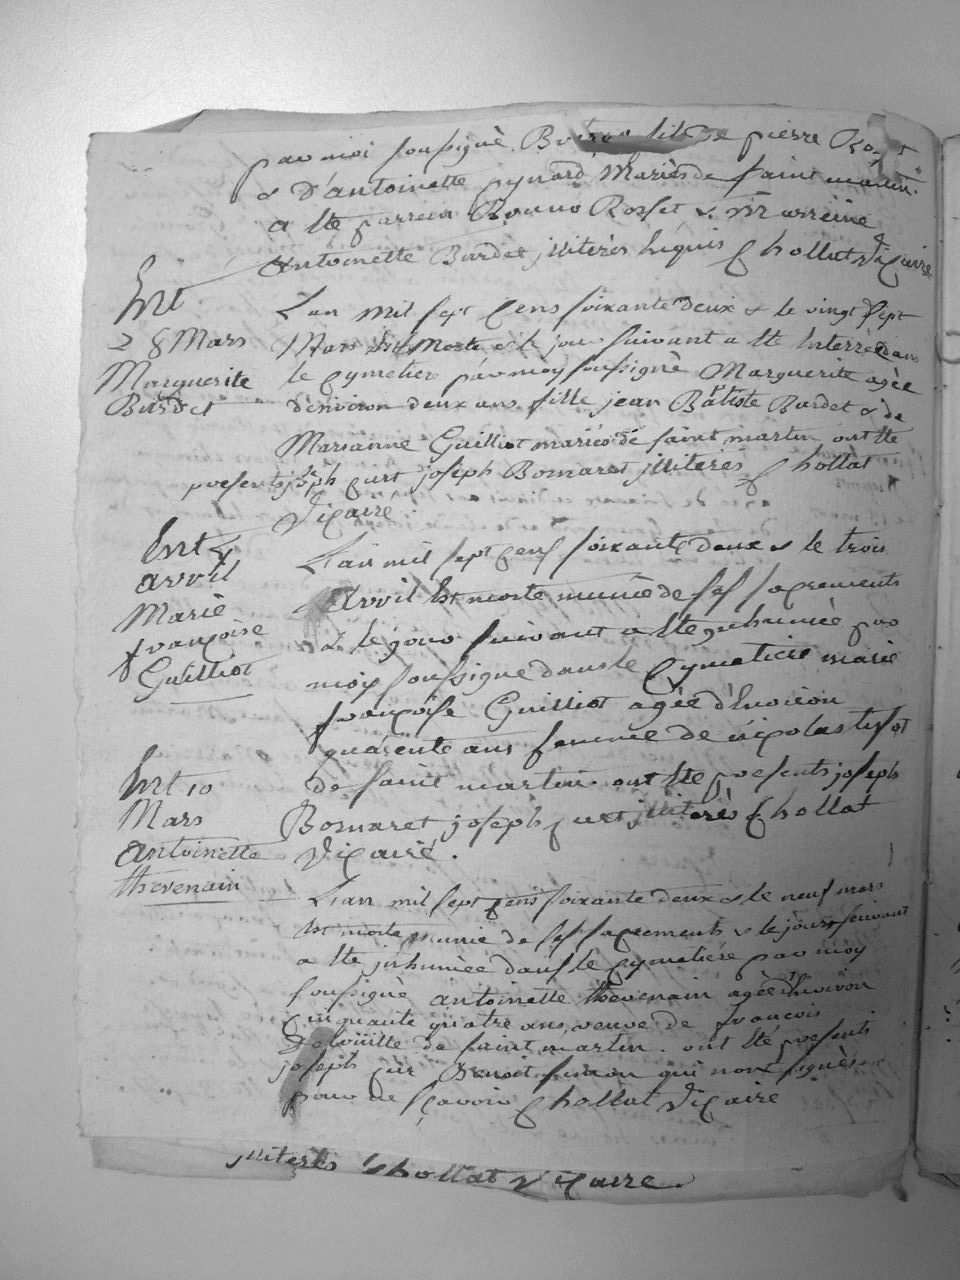 par moi soussigné fils de pierre
& D'antoinette pynard Mariés de saint martin
a ete parrein Rosset & Marreine
Antoinette Burdet jlliterés Requis Chollat Vicaire
Ent
28 Mars
Marguerite
Burdet
L'an mil sept cens soixante deux & le vingt sept
Mars Est Morte & le jour suivant a ete Enterrée dans
le cymetiere par moy soussigné Marguerite agée
d'environ deux ans fille jean Batiste Burdet & de
Marianne Guilliot mariés de saint martin ont ete
presents joseph curt joseph Bornaret jlliterés Chollat
Vicaire
Ent 4
avvil
Marie
françoise
Guilliot
L'an mil sept cens soixante deux & le trois
Avvil Est morte munie de ses sacrements
& le jour suivant a ete jnhumée par
moy soussigne dans le cymetiere marie
françoise Guilliot agée d'Environ
quarente ans femme de nicolas tissot
de saint martin ont ete presents joseph
Bornaret joseph curt jlliterés Chollat
Vicaire.
Ent 10
Mars
Antoinette
thevenain
L'an mil sept cens soixante deux & le neuf mars
Est morte munie de ses sacrements & le jour suivant
a ete jnhumée dans le cymetiére par moy
soussigné antoinette thevenain agée d'Environ
cinquante quatre ans veuve de françois
de saint martin. ont eté presents
joseph cur Benoit qui nont signés
pour ne sçavoir Chollat Vicaire
jlliterés Chollat Vicaire.